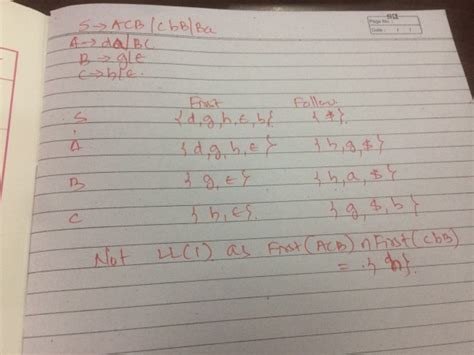 S → ACB | CbB | Ba
Page No.:
Date: / /
A → da | BC
B → g | ε
C → h | ε.
First Follow
S { d, g, h, ε, b} { $ }.
A { d, g, h, ε } { h, g, $ }
B { g, ε } { h, a, $ }
C { h, ε }. { g, $, b }
Not LL(1) as First(ACB) ∩ First(CbB)
= { h}.